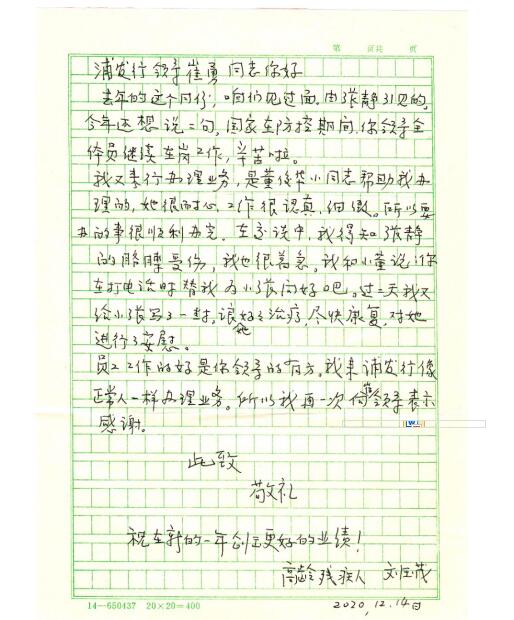 第 页共 页
浦发行领导崔勇同志你好
去年的这个月份,咱们见过面.由张静引见的,
今年还想说二句,国家在防控期间,你领导全
体员继续在岗工作,辛苦啦。
我又来行办理业务,是董俊华小同志帮助我办
理的,她很耐心.工作很认真.细微。所以要
办的事很顺利办完.在言谈中,我得知张静
的胳膊受伤,我也很着急。我和小董说:你
在打电话时替我为小张问好吧。过二天我又
给小张写了一封,让她好好治疗,尽快康复,对她
进行了安慰。
员工工作的好是你领导的有方。我来浦发行像
正常人一样办理业务。所以我再一次向领导表示
感谢。
此致
敬礼
祝在新的一年创立更好的业绩!
高龄残疾人 刘 茂
2020,12.14日
14—650437 20×20=400